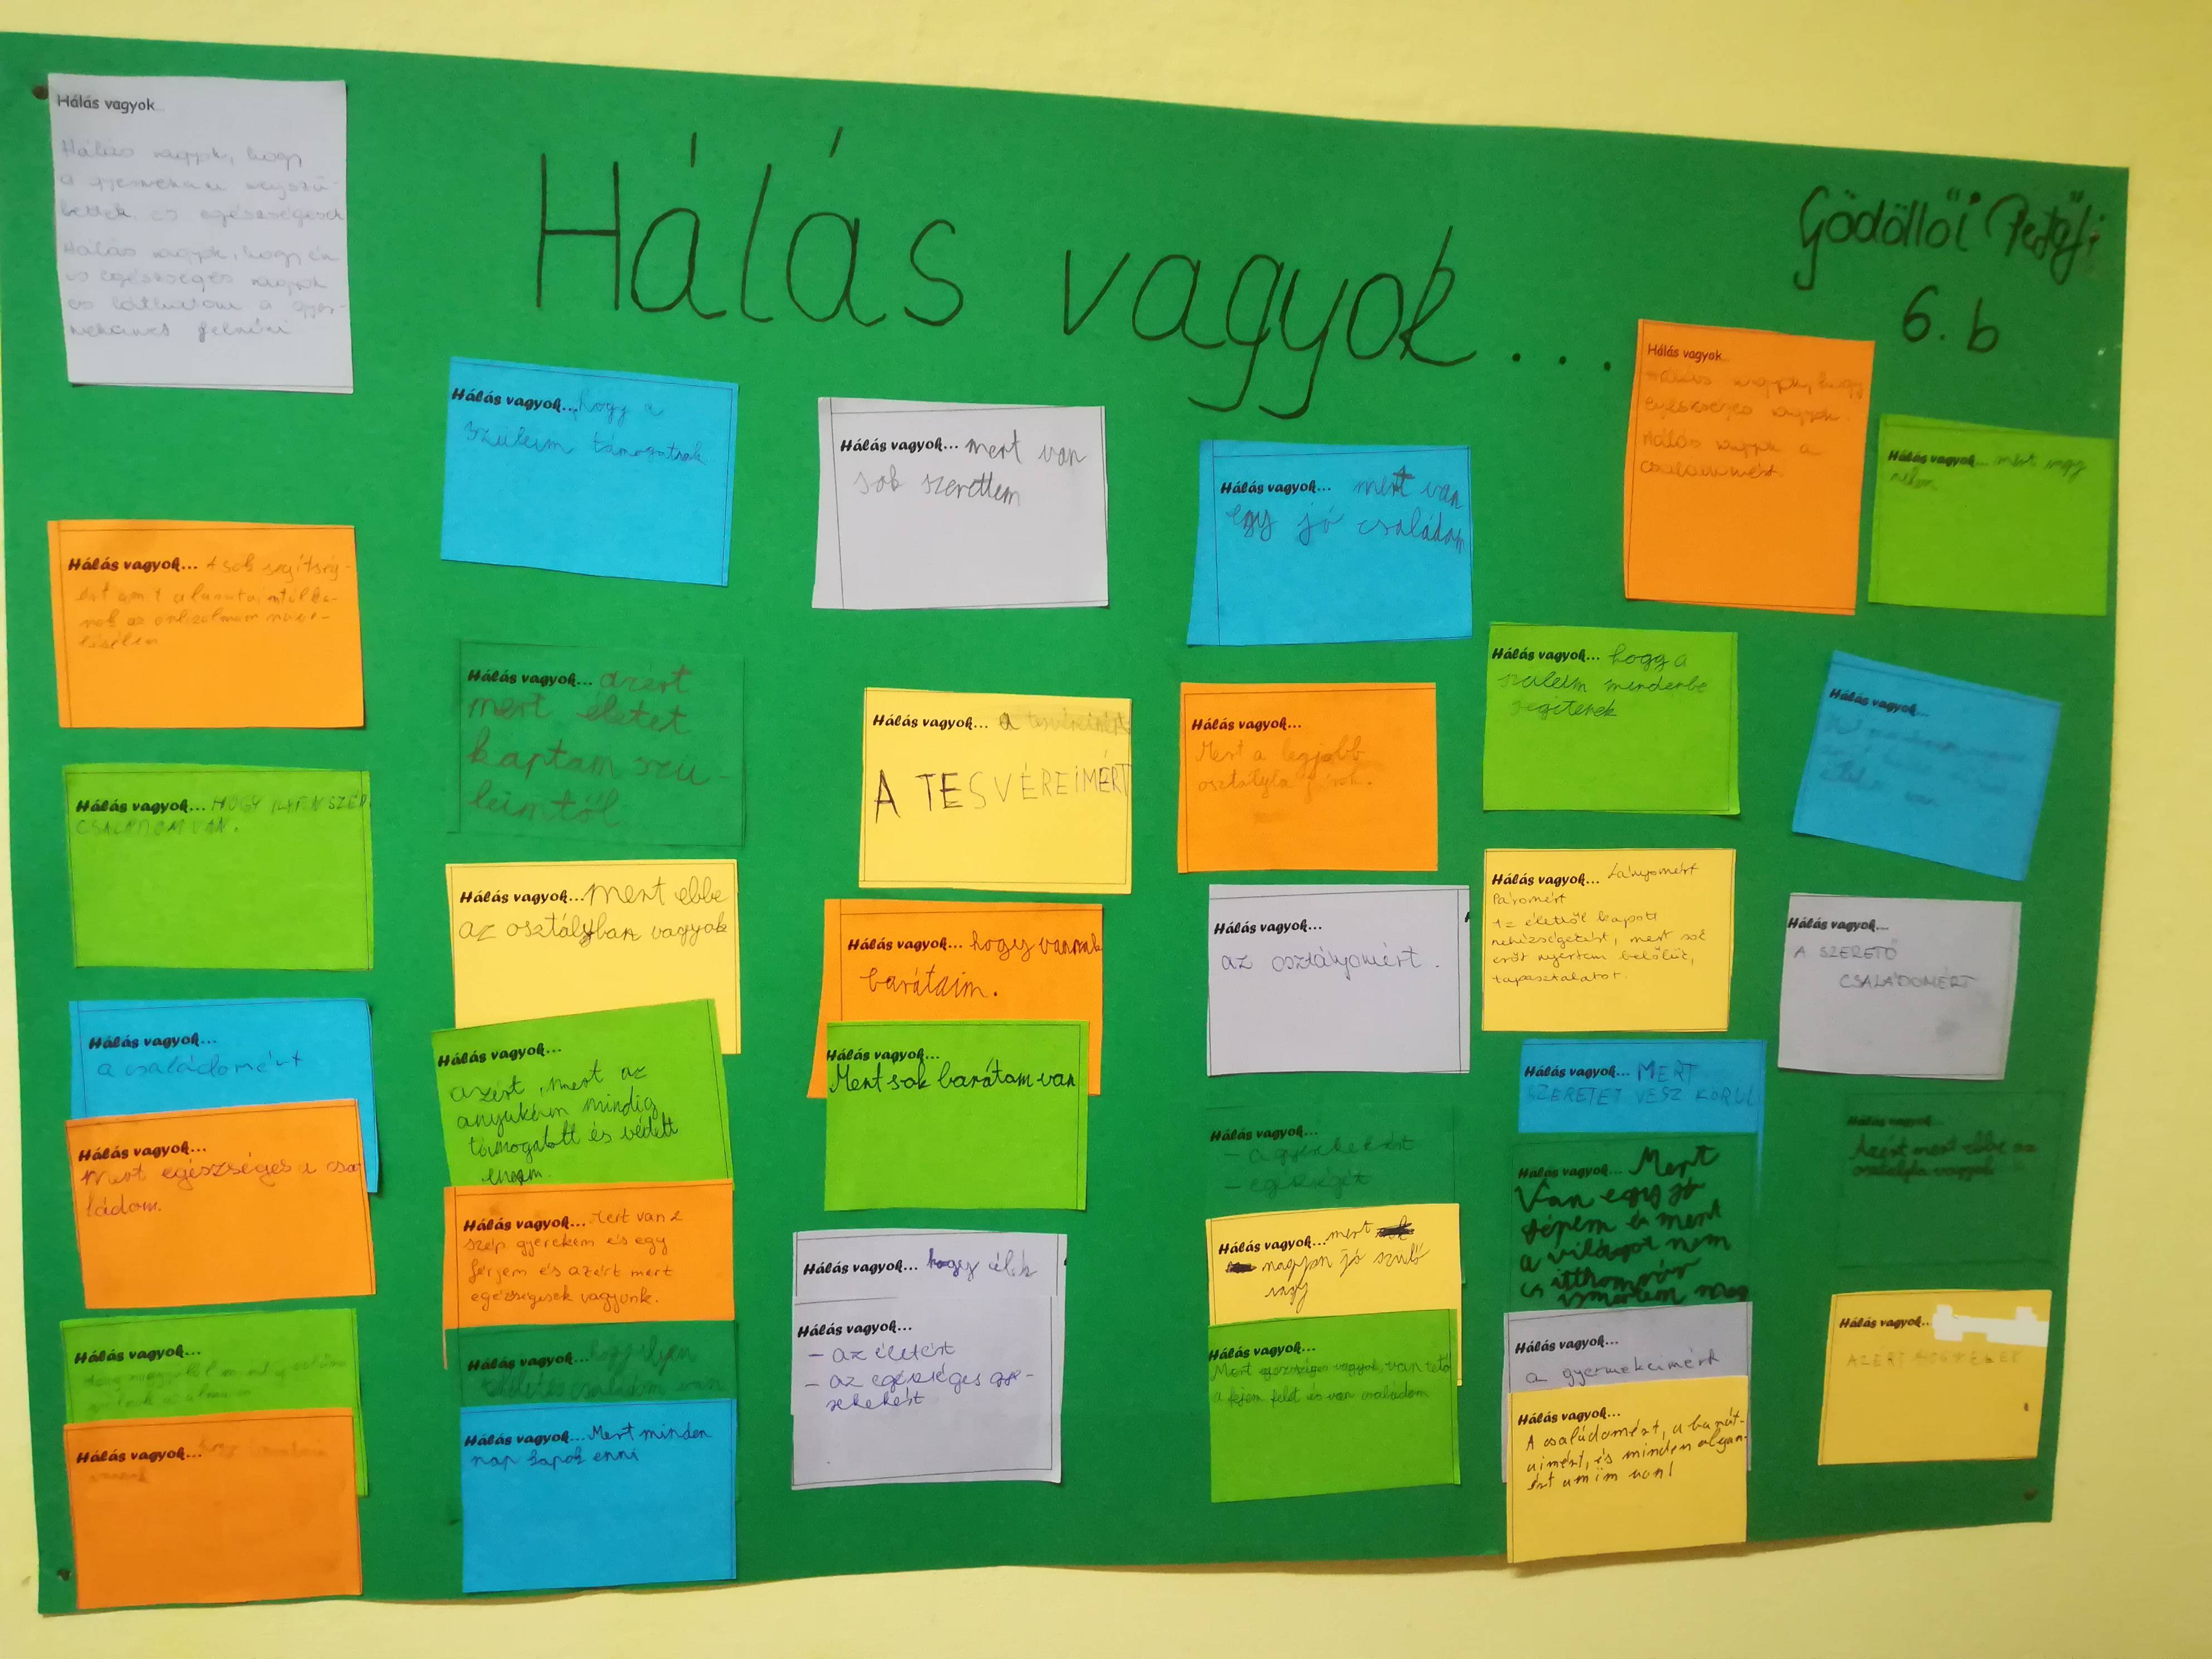 Hálás vagyok...
Gödöllői Petőfi
6. b
Hálás vagyok...
Hálás vagyok, hogy
a gyermekeim megszü-
lettek és egészségesek
Hálás vagyok, hogy én
is egészséges vagyok
és láthatom a gyer-
mekeimet felnőni
Hálás vagyok... A sok segítség-
ért amit a barátaimtól ka-
pok az önbizalmam növe-
lésében
Hálás vagyok... HOGY ILYEN SZÉP
CSALÁDOM VAN.
Hálás vagyok...
a családomért
Hálás vagyok...
Mert egészséges a csa
ládom.
Hálás vagyok...
Hálás vagyok... hogy
Hálás vagyok... hogy a
szüleim támogatnak
Hálás vagyok... azért
mert életet
kaptam szü-
leimtől
Hálás vagyok... mert ebbe
az osztályban vagyok
Hálás vagyok...
azért, mert az
anyukám mindig
támogatott és védett
engem.
Hálás vagyok... Mert van 2
szép gyerekem és egy
férjem és azért mert
egézségesek vagyunk.
Hálás vagyok... hogy ilyen
családom van
Hálás vagyok... Mert minden
nap kapok enni
Hálás vagyok... mert van
sok szerettem
Hálás vagyok... a tesvéreimért
A TESVÉREIMÉRT
Hálás vagyok... hogy vannak
barátaim.
Hálás vagyok...
Mert sok barátom van
Hálás vagyok... hogy élek
Hálás vagyok...
- az életért
- az egészséges gye-
rekekért
Hálás vagyok... mert van
egy jó családom
Hálás vagyok...
Mert a legjobb
osztályba járok.
Hálás vagyok...
az osztályomért.
Hálás vagyok...
- a gyerekekért
- egészségért
Hálás vagyok... mert
nagyon jó szülő
vagy
Hálás vagyok...
Mert egészséges vagyok, van tető
a fejem felet és van családom
Hálás vagyok...
Hálás vagyok, hogy
egészséges vagyok.
Hálás vagyok a
családomért.
Hálás vagyok... hogy a
szüleim mindenbe
segítenek
Hálás vagyok... Lányomért
Páromért
Az élettől kapott
nehézségekért, mert sok
erőt nyertem belőlük,
tapasztalatot.
Hálás vagyok... MERT
SZERETET VESZ KÖRÜL
Hálás vagyok... Mert
Van egy jó
gépem és mert
a világot nem
cs itthonról
ismertem meg
Hálás vagyok...
a gyermekeimért
Hálás vagyok...
A családomért, a barát-
aimért, és minden olyan-
ért amim van!
Hálás vagyok... mert
nekem
Hálás vagyok...
Hálás vagyok...
A SZERETŐ
CSALÁDOMÉRT
Hálás vagyok...
Azért mert ebbe az
osztályba vagyok
Hálás vagyok...
AZÉRT HOGY ÉLEK